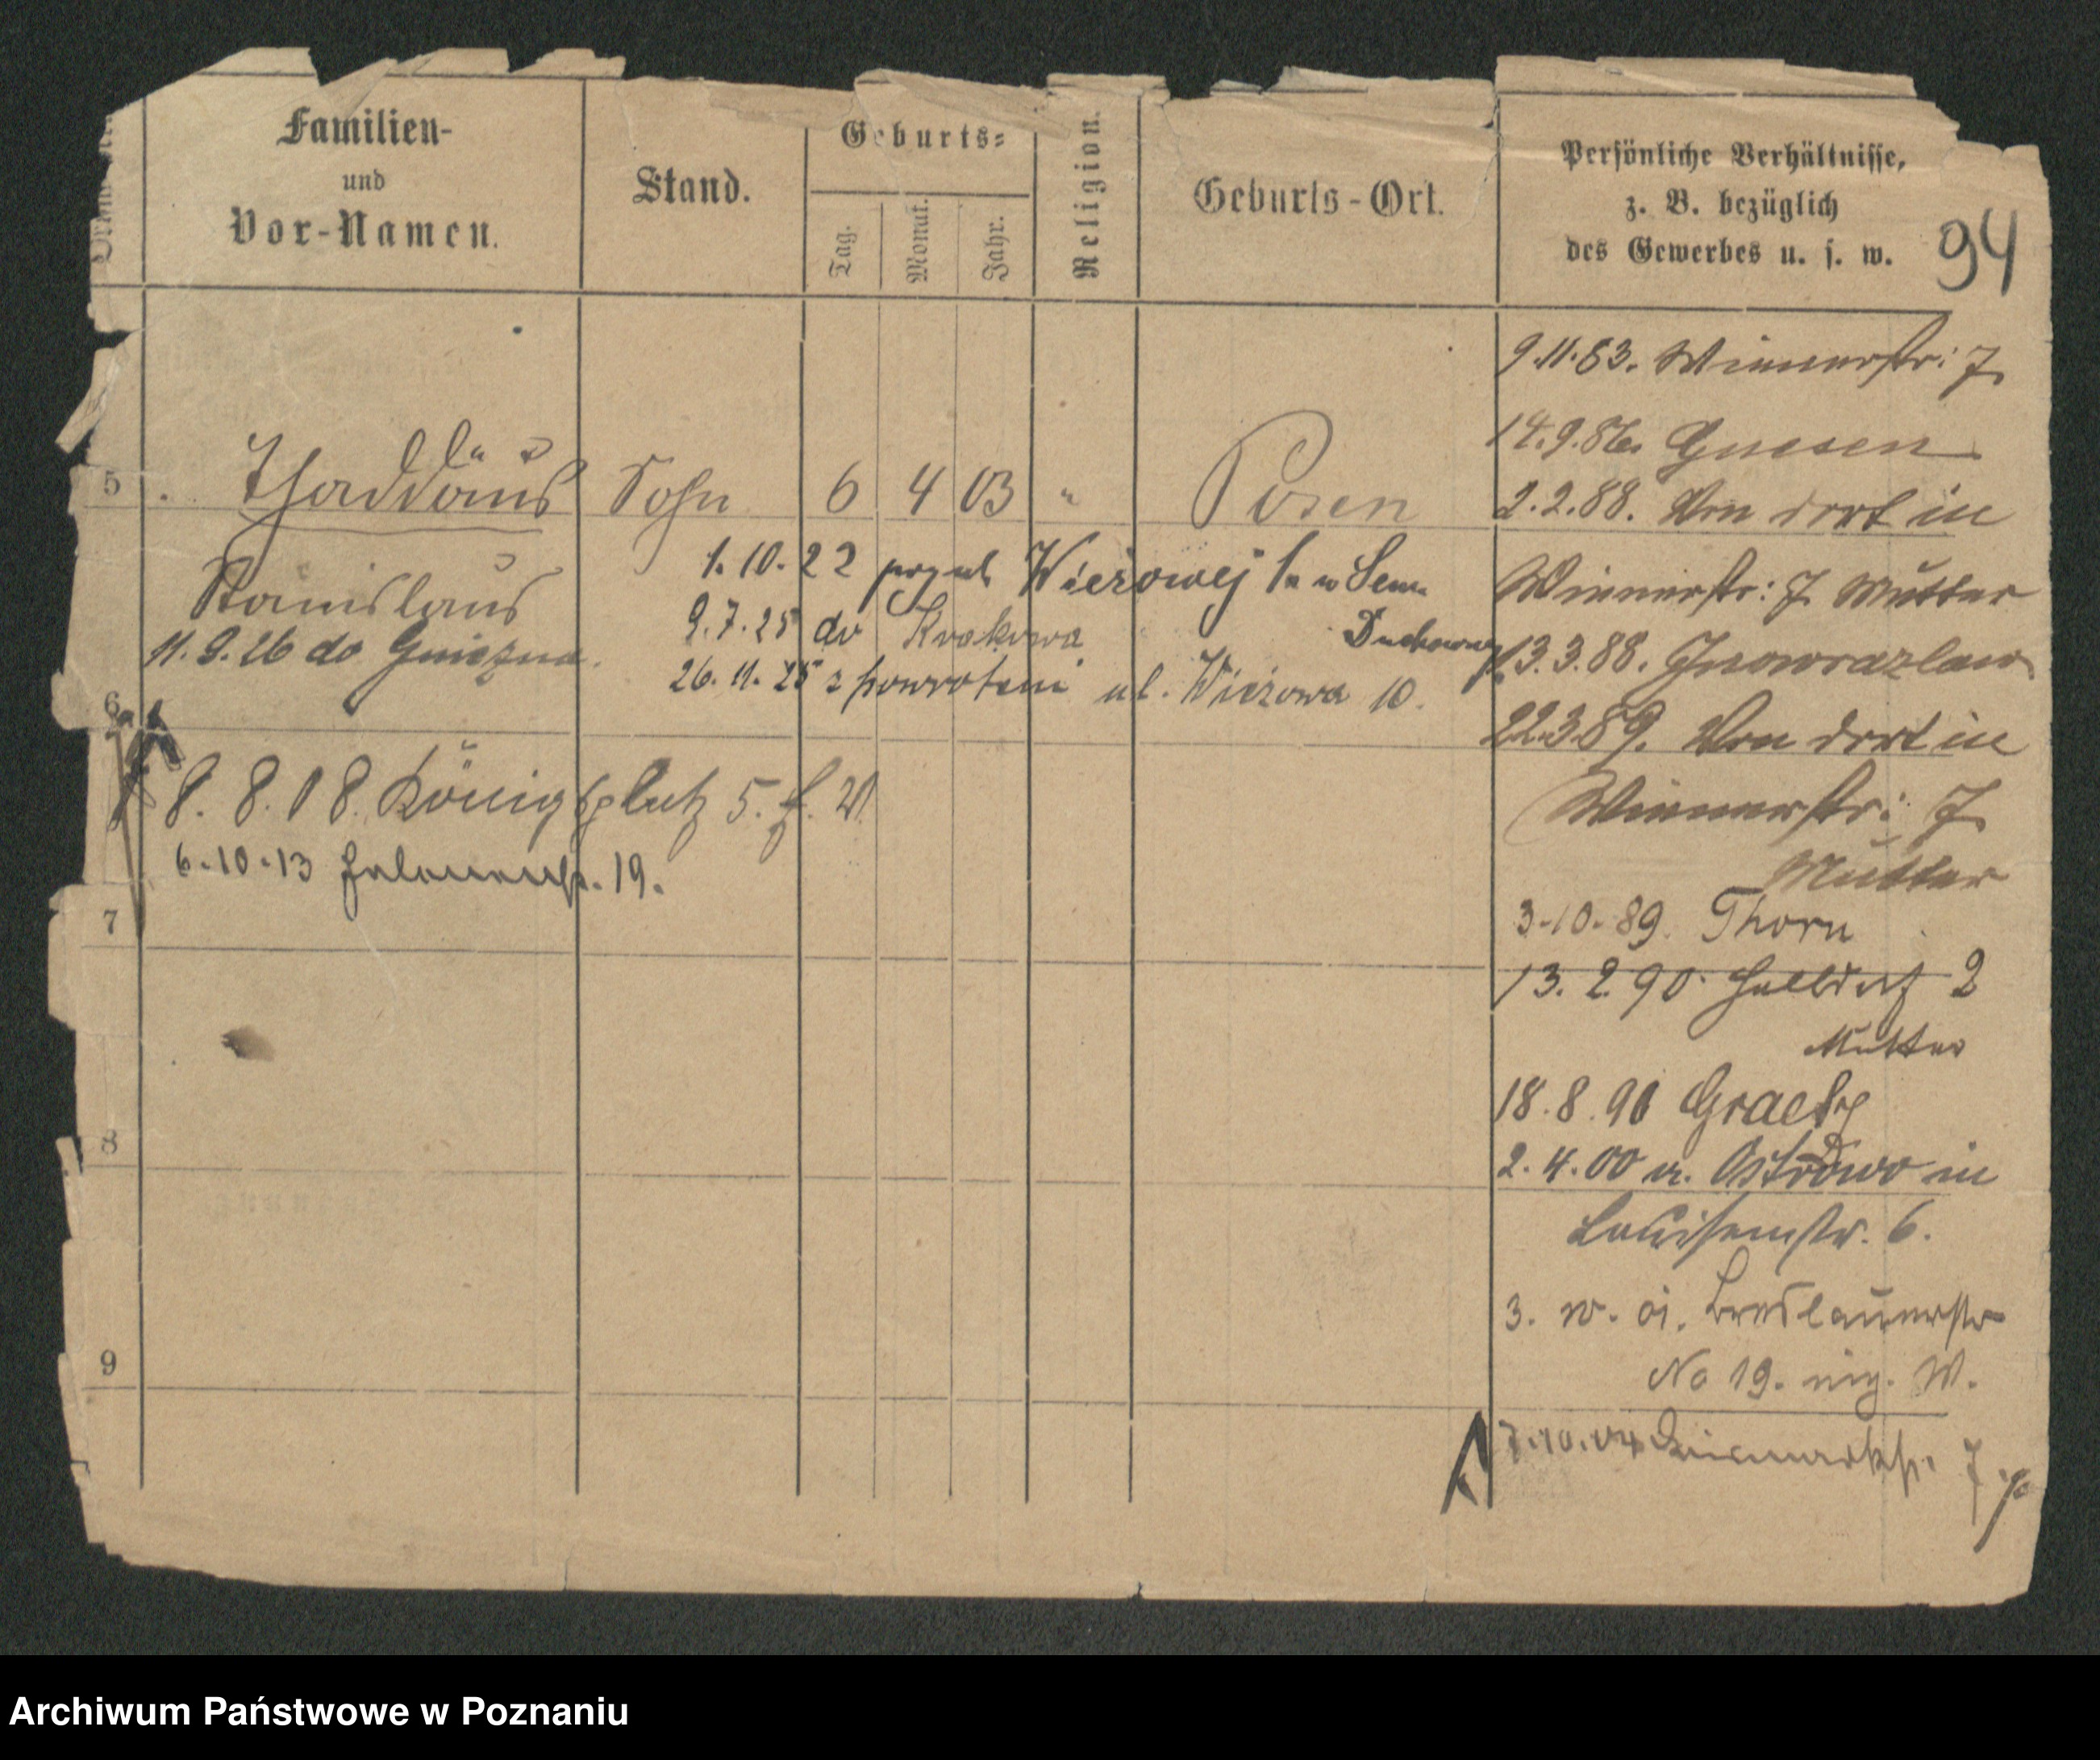 Familien-
und
Vor-Namen.
Stand.
Geburts-
Tag.
Monat.
Jahr.
Religion.
Geburts-Ort.
Persönliche Verhältnisse,
z. B. bezüglich
des Gewerbes u. s. w.
94
5
Thaddäus Sohn 6 4 03 " Posen
Stanislaus
1. 10. 22 Wieżowej w Sem.
Duchowny
9.7.25 do Krakowa
11.9.26 do Gniezna.
26.11.25 z powrotem ul. Wieżowa 10.
6
8. 8. 08. Königsplatz 5.
6-10-13 19.
7
8
9
9.11.83. Wienerstr: 7
14.9.86. Gnesen
2.2.88. Von dort in
Wienerstr: 7 Mutter
13.3.88. Inowrazlaw
22.3.89. Von dort in
Wienerstr: 7
Mutter
3-10-89. Thorn
13. 2. 90. Halbdorf 2
Mutter
18. 8. 90 Graetz
2. 4. 00 v. Ostrowo in
Louisenstr. 6.
3. 10. 01. Breslauerstr
No 19. eig. W.
7.10.04 Bismarckstr. 7
Archiwum Państwowe w Poznaniu